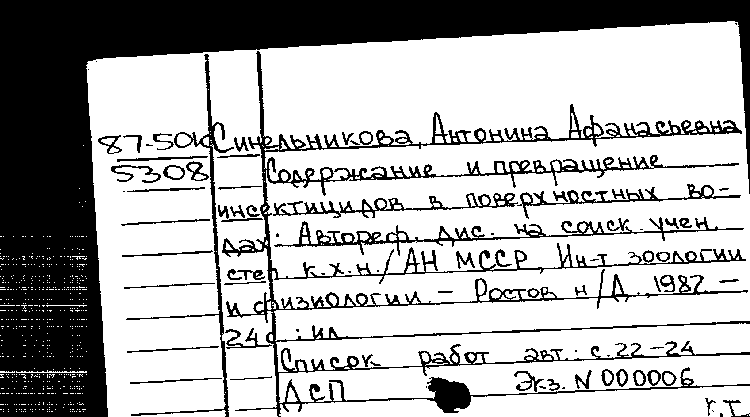 87-50к Синельникова, Антонина Афанасьевна
5308 Содержание и превращение
инсектицидов в поверхностных во-
дах: Автореф. дис. на соиск. учен.
степ. к.х.н./ АН МССР, Ин-т зоологии
и физиологии. – Ростов н/Д., 1987. –
24с.: ил
Список работ авт.: с.22-24
ДСП Экз. N 000006